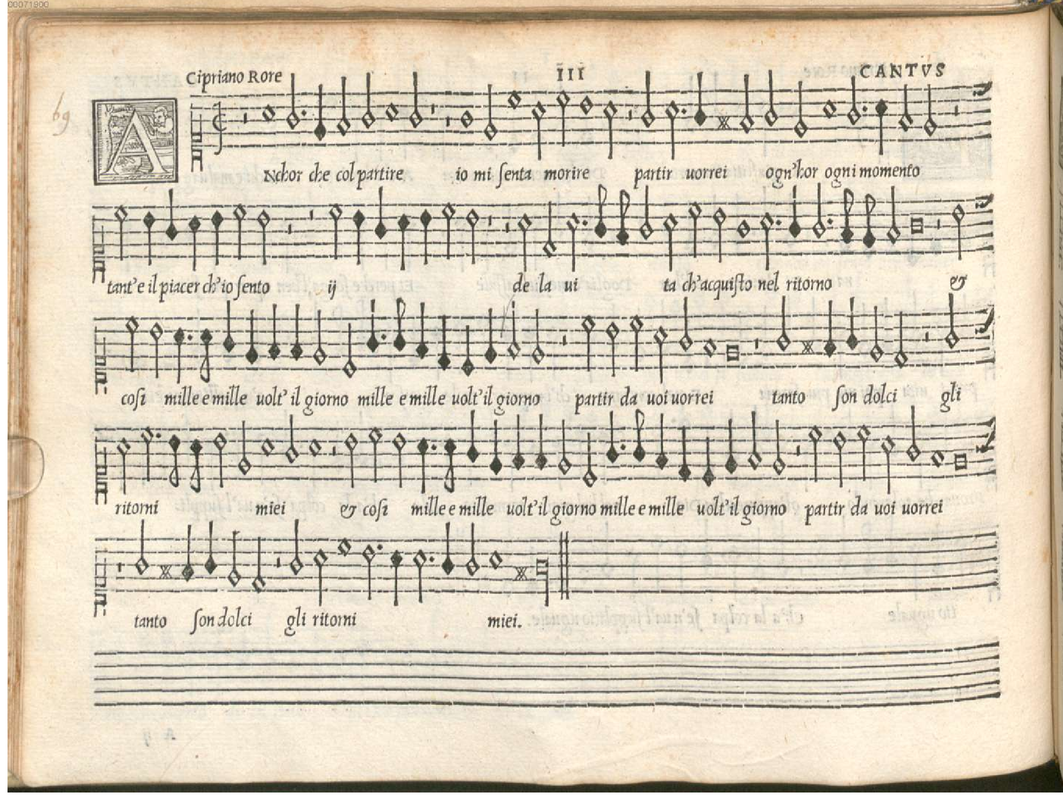 00071900
Cipriano Rore III CANTVS
69
ANchor che col partire io mi senta morire partir uorrei ogn'hor ogni momento
tant'e il piacer ch'io sento ij de la ui ta ch'acquisto nel ritorno &
cosi mille e mille uolt' il giorno mille e mille uolt' il giorno partir da uoi uorrei tanto son dolci gli
ritorni miei & cosi mille e mille uolt' il giorno mille e mille uolt' il giorno partir da uoi uorrei
tanto son dolci gli ritorni miei.